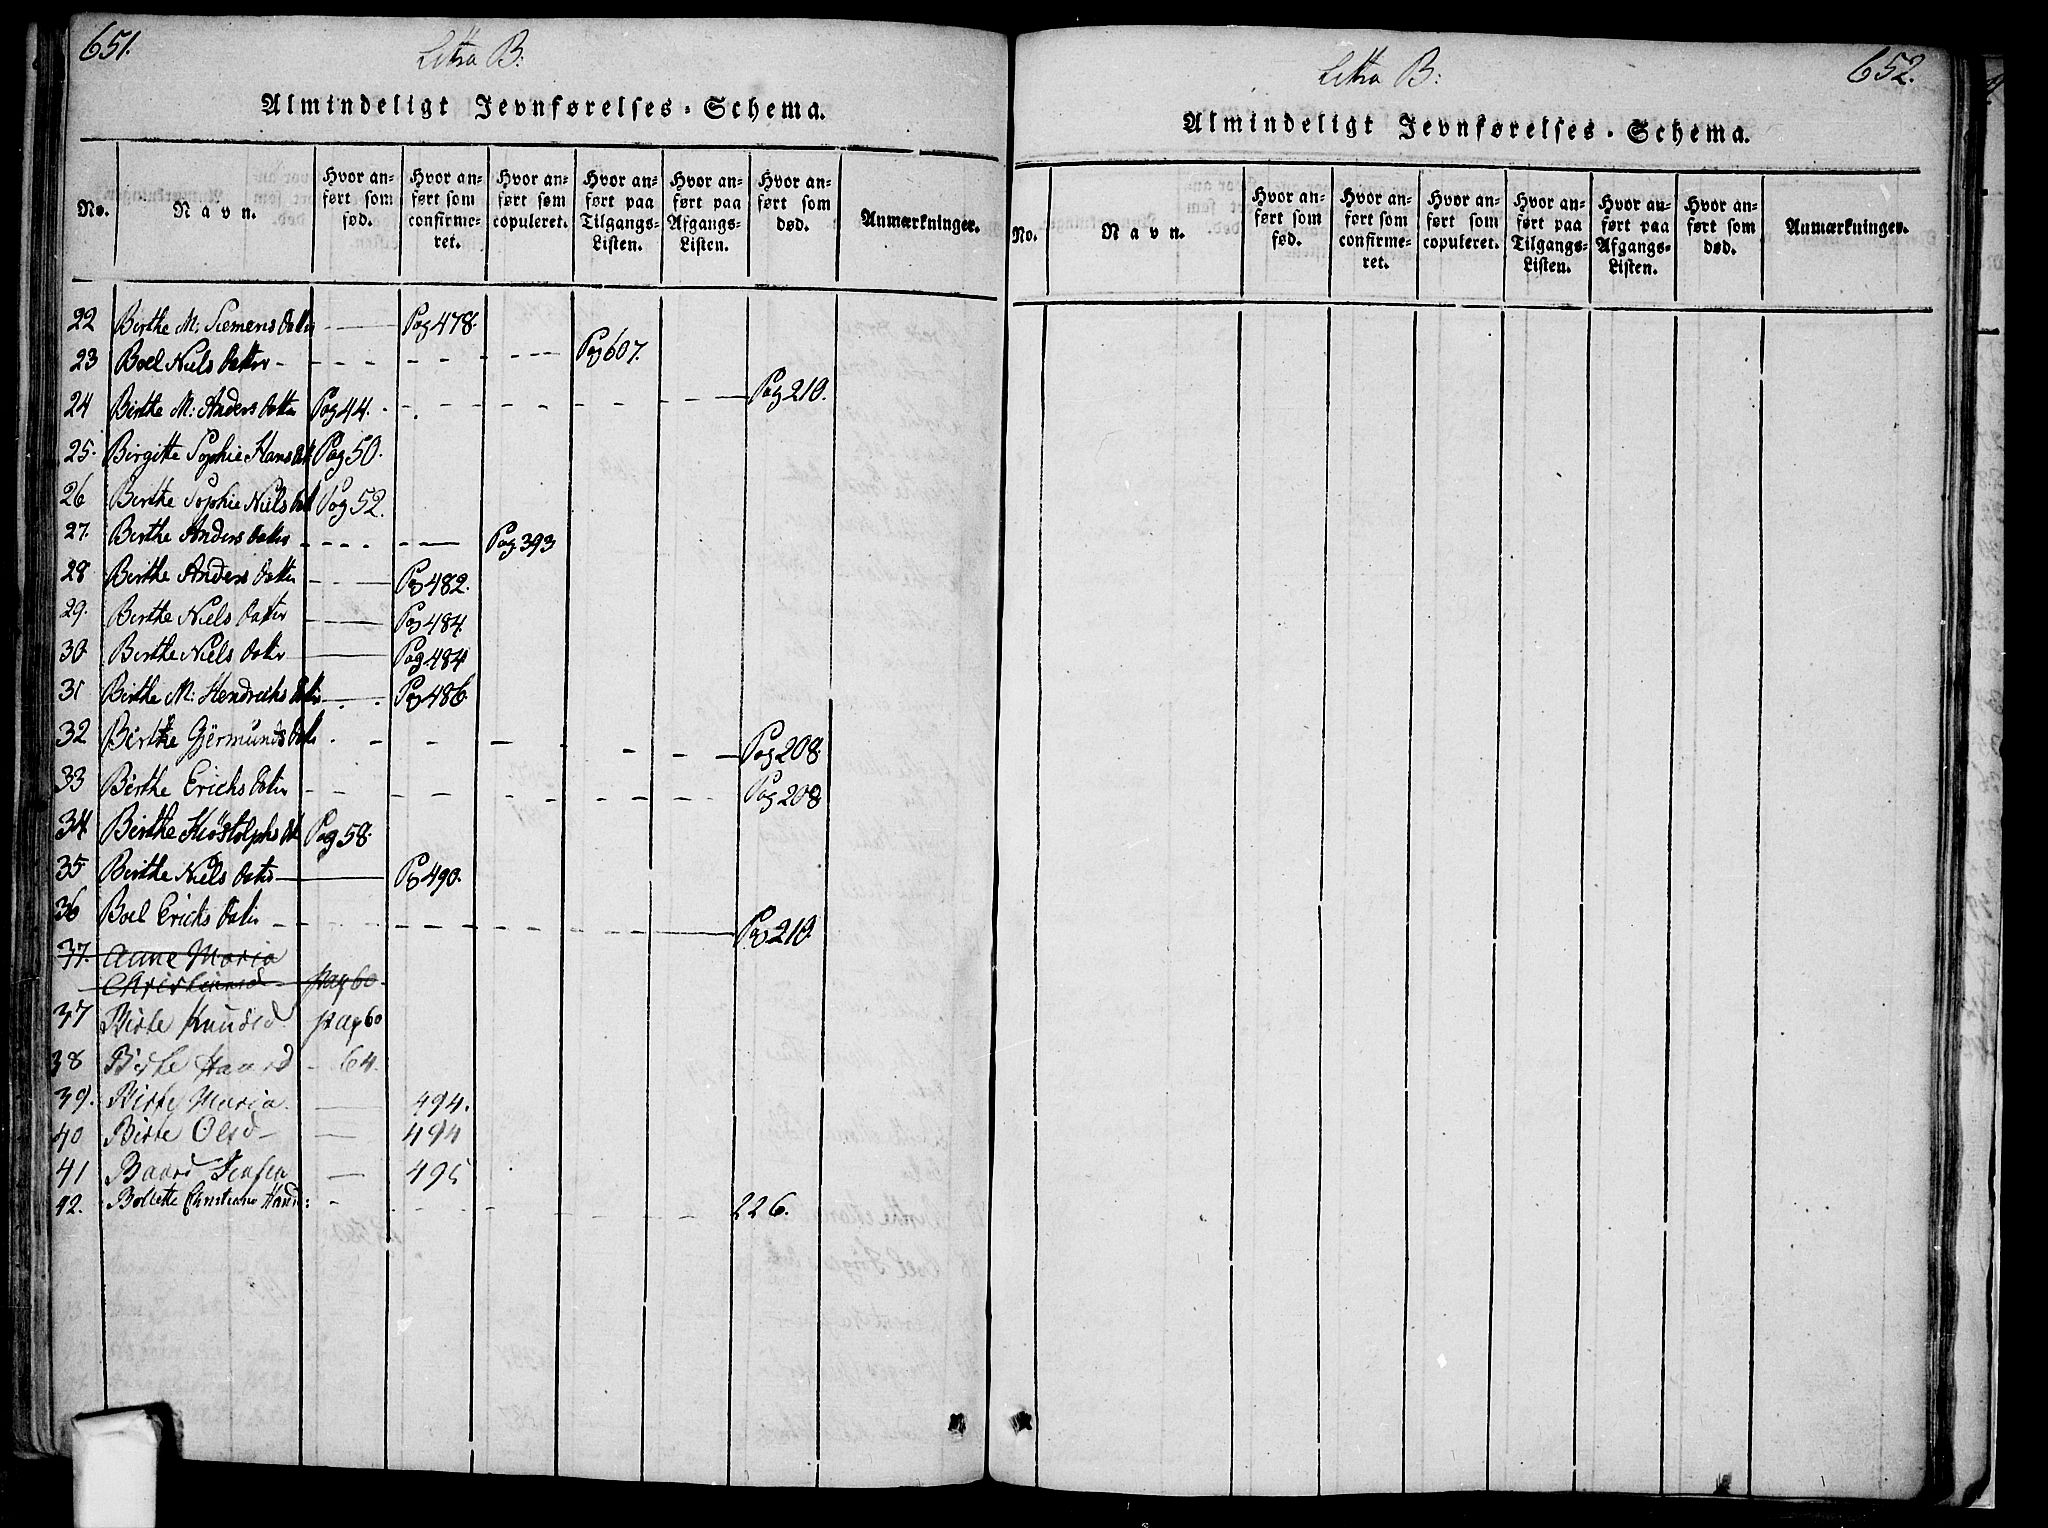 651.
Littra B:
Almindeligt Jevnførelses-Schema.
No. Navn. Hvor anført som fød. Hvor anført som confirmeret. Hvor anført som copuleret. Hvor anført paa Tilgangs-Listen. Hvor anført paa Afgangs-Listen. Hvor anført som død. Anmærkninger.
22 Birthe M: Siemens Datter Pag 478.
23 Boel Niels Datter Pag 607.
24 Birthe M: Anders Datter Pag 44. Pag 210.
25. Birgitte Sophie Hans Dat Pag 50.
26 Birthe Sophie Niels Dat Pag 52.
27. Birthe Anders Datter Pag 393
28 Birthe Anders Datter Pag 482.
29. Birthe Niels Datter Pag 484.
30 Birthe Niels Datter Pag 484
31 Birthe M: Hendrichs Datter Pag 486
32 Birthe Gjermunds Datter Pag 208.
33 Birthe Erichs Datter Pag 208
34 Birthe Kiøstolphs Dat Pag 58.
35 Birthe Niels Datter Pag 490.
36 Boel Erichs Datter Pag 210.
37. Anne Maria
Christiansd pag 60
37 Birte Knudsd pag 60
38 Birte Haard - 64.
39. Birte Maria 494.
40 Birte Olsd 494
41 Baard Jensen 495
42. Bolette Christiane Hansd: 226.
652.
Littra B:
Almindeligt Jevnførelses-Schema.
No. Navn. Hvor anført som fød. Hvor anført som confirmeret. Hvor anført som copuleret. Hvor anført paa Tilgangs-Listen. Hvor anført paa Afgangs-Listen. Hvor anført som død. Anmærkninger.